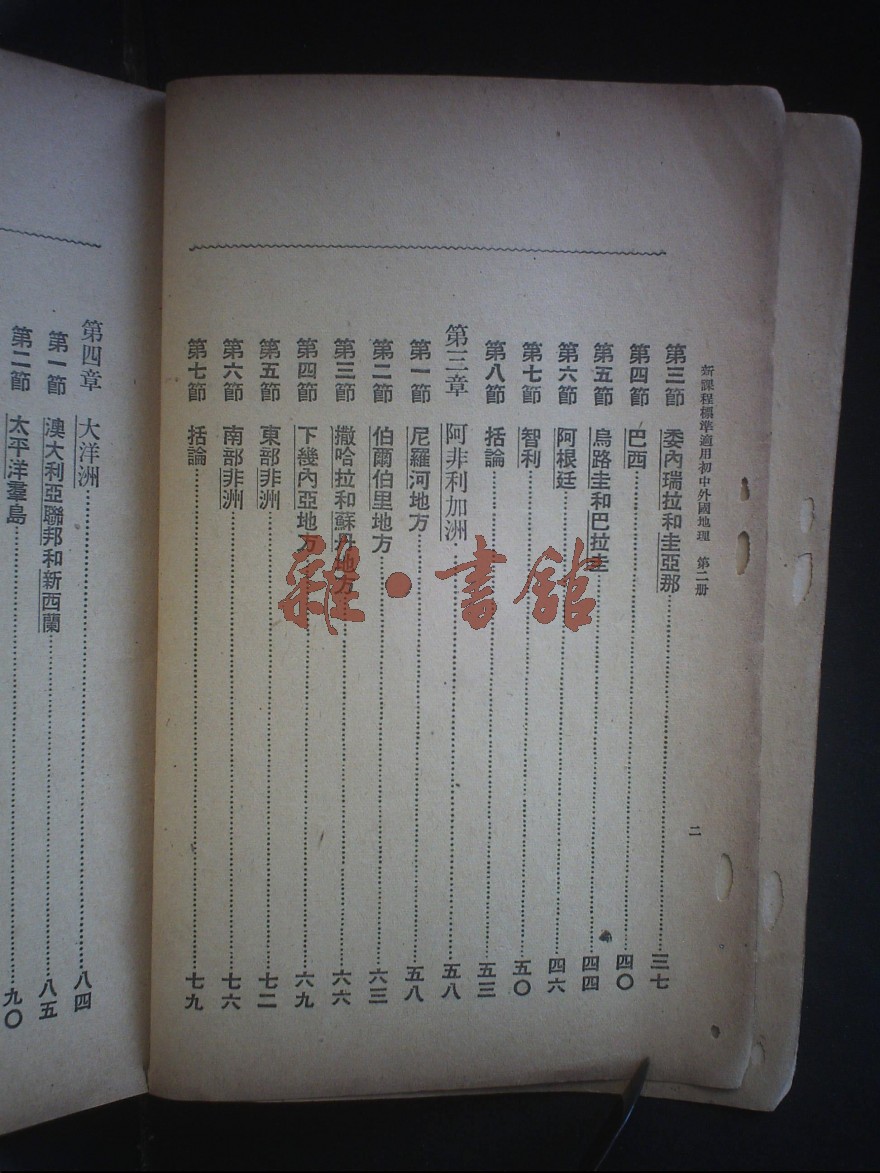 新課程標準適用初中外國地理 第二册
二
第三節 委內瑞拉和圭亞那 三七
第四節 巴西 四〇
第五節 烏路圭和巴拉圭 四四
第六節 阿根廷 四六
第七節 智利 五〇
第八節 括論 五三
第三章 阿非利加洲 五八
第一節 尼羅河地方 五八
第二節 伯爾伯里地方 六三
第三節 撒哈拉和蘇丹地方 六六
第四節 下幾內亞地方 六九
第五節 東部非洲 七二
第六節 南部非洲 七六
第七節 括論 七九
第四章 大洋洲 八四
第一節 澳大利亞聯邦和新西蘭 八五
第二節 太平洋羣島 九〇
雜·書館